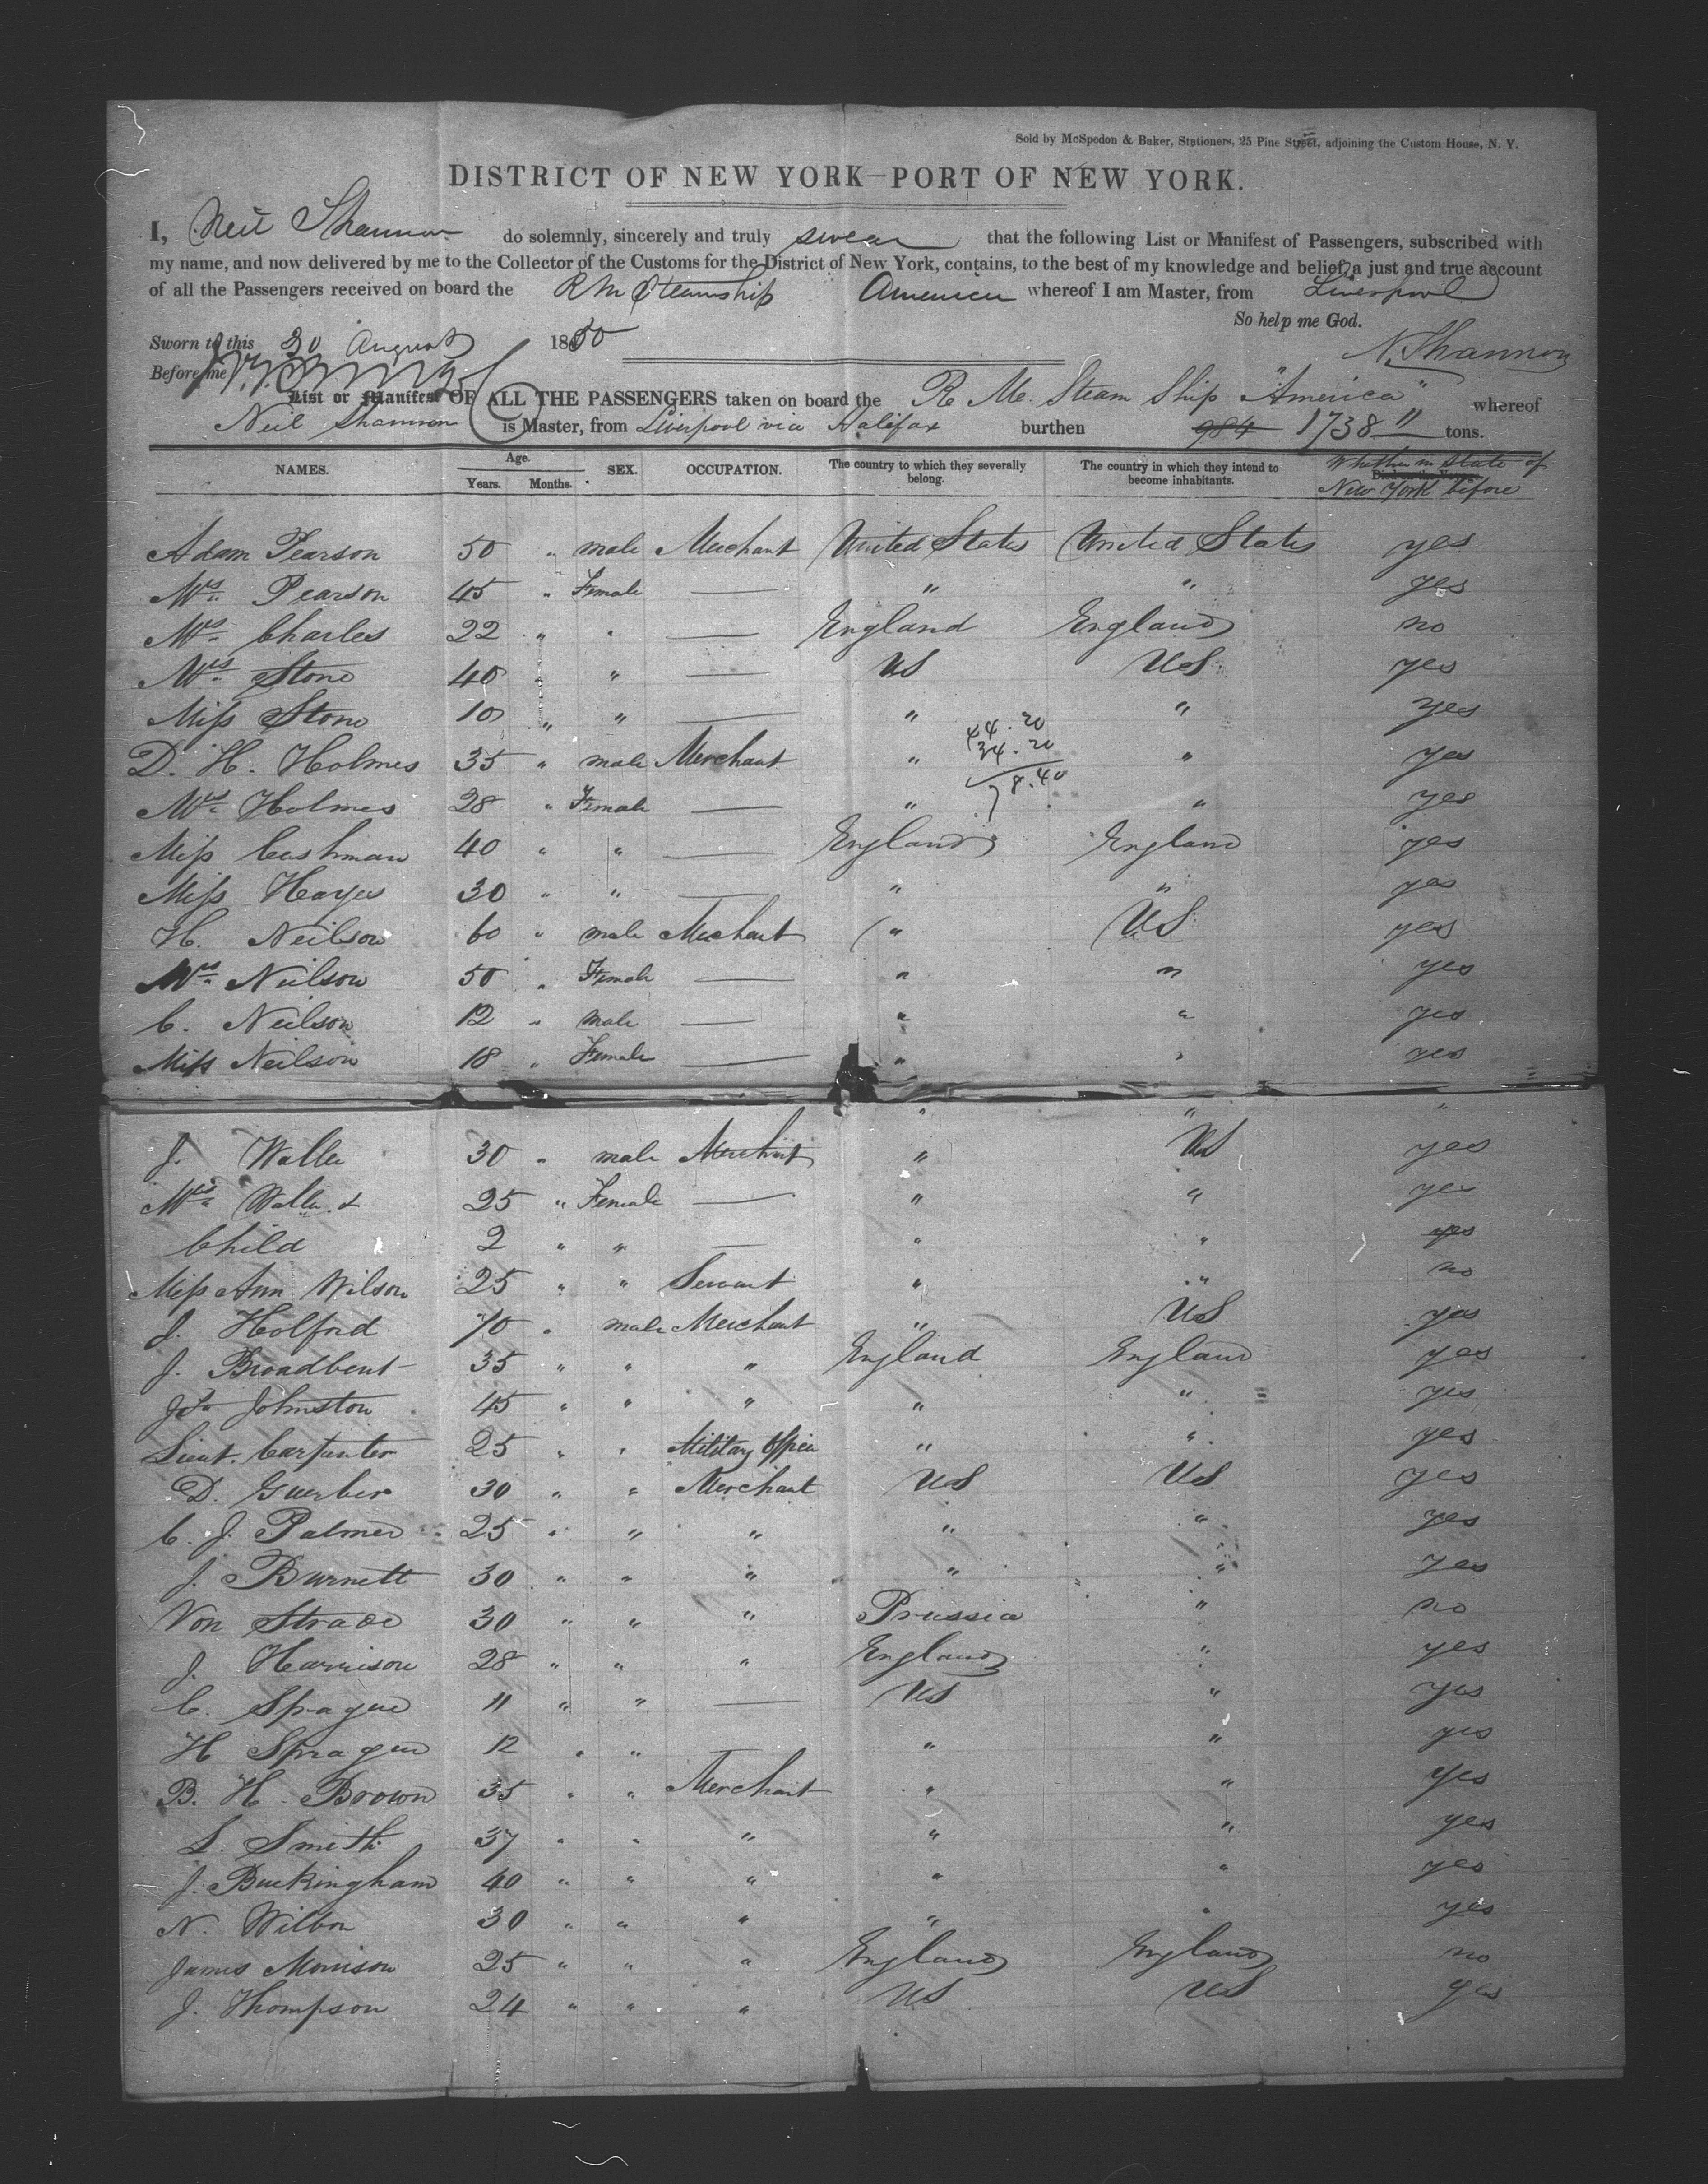 Sold by McSpedon & Baker, Stationers, 25 Pine Street, adjoining the Custom House, N. Y.
DISTRICT OF NEW YORK—PORT OF NEW YORK.
I, Neil Shannon do solemnly, sincerely and truly swear that the following List or Manifest of Passengers, subscribed with
my name, and now delivered by me to the Collector of the Customs for the District of New York, contains, to the best of my knowledge and belief, a just and true account
of all the Passengers received on board the R M Steamship America whereof I am Master, from Liverpool
So help me God.
Sworn to this 30 August 1850
N. Shannon
Before me
List or Manifest OF ALL THE PASSENGERS taken on board the R. M. Steam Ship "America" whereof
Neil Shannon is Master, from Liverpool via Halifax burthen 984 1738 " tons.
NAMES. Age. Years. Months. SEX. OCCUPATION. The country to which they severally belong. The country in which they intend to become inhabitants. Whether in State of New York before
Adam Pearson 50 " male Merchant United States United States yes
Mrs. Pearson 45 " Female — " " yes
Mrs. Charles 22 " " — England England no
Mrs. Stone 40 " " — US US yes
Miss Stone 10 " " — " " yes
44.20
34.20
78.40
D. H. Holmes 35 " male Merchant " " yes
Mrs. Holmes 28 " Female — " " yes
Miss Cushman 40 " " — England England yes
Miss Hayes 30 " " — " " yes
H. Neilson 60 " male Merchant " US yes
Mrs. Neilson 50 " Female — " " yes
C. Neilson 12 " male — " " yes
Miss Neilson 18 " Female — " " yes
" " "
J. Waller 30 " male Merchant " US yes
Mrs. Waller & 25 " Female — " " yes
Child 2 " " — " " yes
Miss Ann Wilson 25 " " Servant " " no
J. Holford 70 " male Merchant " US yes
J. Broadbent 35 " " " England England yes
Johnston 45 " " " " " yes
Lieut. Carpenter 25 " " Military Officer " " yes
D. Guerber 30 " " Merchant US US yes
C. J. Palmer 25 " " " " " yes
J. Burnett 30 " " " " " yes
Von 30 " " " Prussia " no
J. Harrison 28 " " " England " yes
C. Sprague 11 " " — US " yes
H Sprague 12 " " — " " yes
B. H. Brown 35 " " Merchant " " yes
S. Smith 37 " " " " " yes
J. Buckingham 40 " " " " " yes
N. 30 " " " " " yes
James Morrison 25 " " " England England no
J. Thompson 24 " " " US US yes